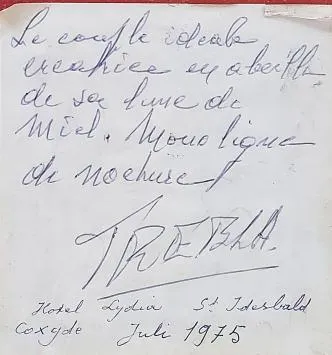 Le couple idéale
creatrice en abeille
de sa lune de
Miel. Mono ligne
de nochure!
TREBLA.
Hotel Lydia St Idesbald
Coxyde Juli 1975